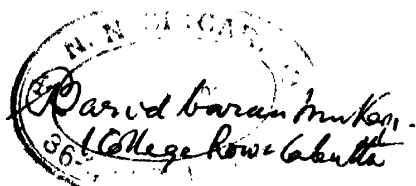 N. N. SIRCAR
Barid baran Muker.
1 College Row Calcutta
36